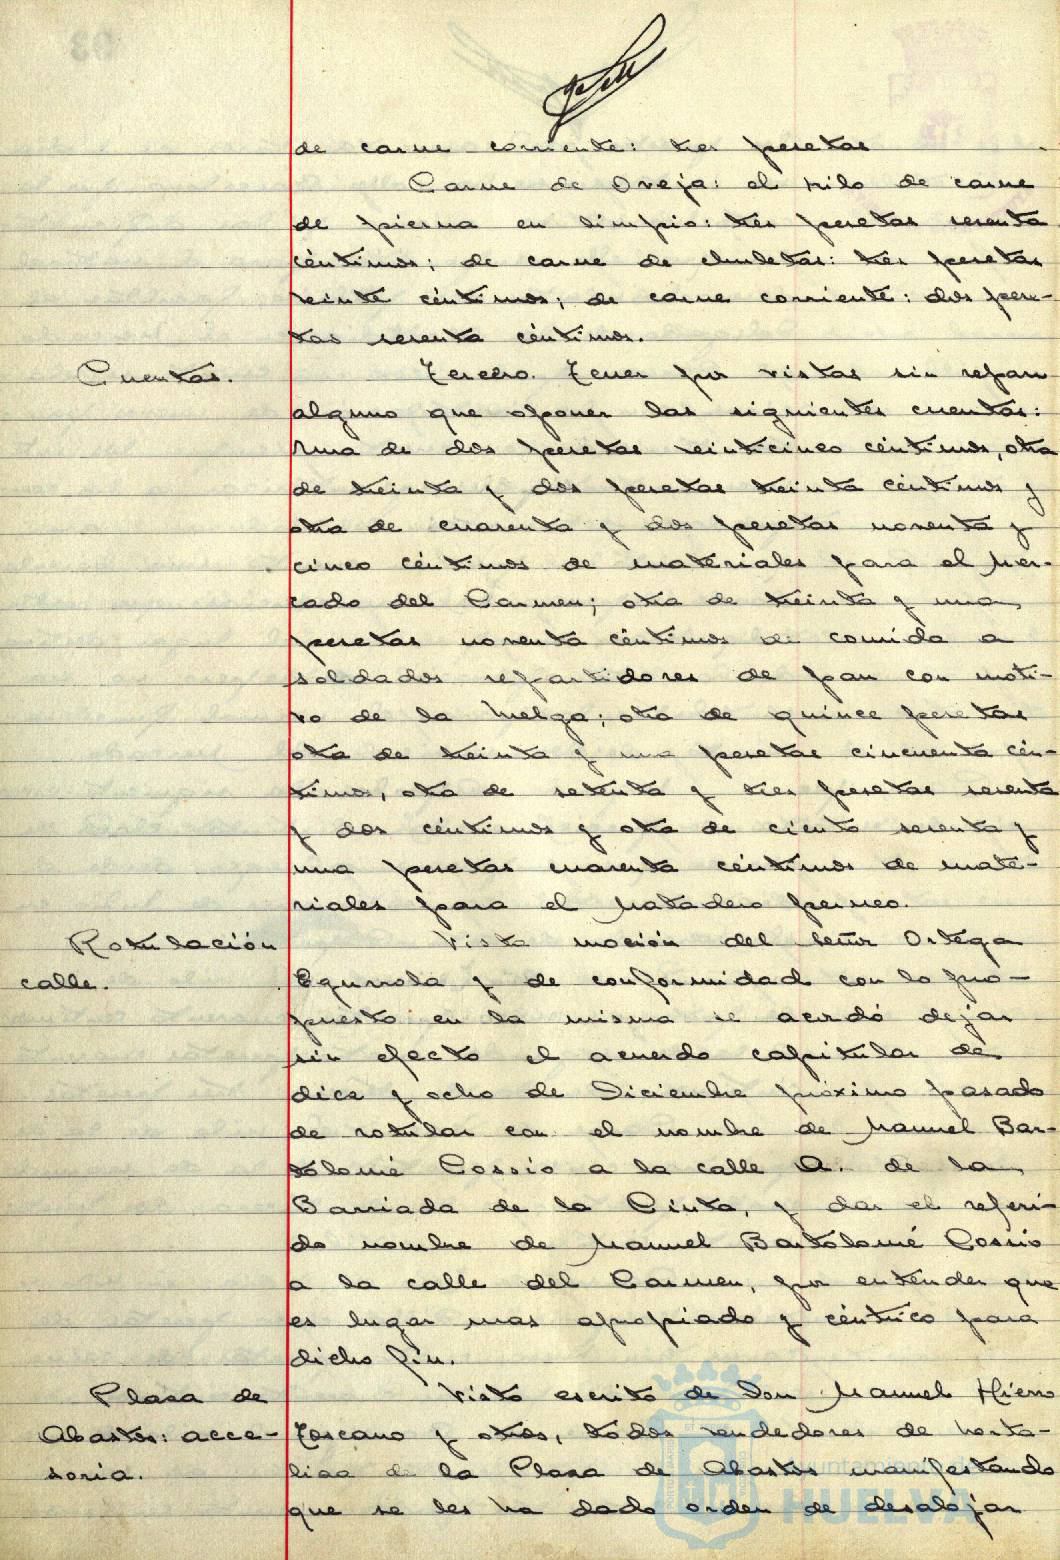 de carne corriente: tres pesetas
Carne de Oveja: el kilo de carne
de pierna en limpio: tres pesetas sesenta
céntimos; de carne de chuletas: tres pesetas
veinte céntimos; de carne corriente: dos pese-
tas sesenta céntimos.
Cuentas.
Tercero. Tener por vistas sin reparo
alguno que oponer las siguientes cuentas:
Una de dos pesetas veinticinco céntimos, otra
de treinta y dos pesetas treinta céntimos y
otra de cuarenta y dos pesetas noventa y
cinco céntimos de materiales para el Mer-
cado del Carmen; otra de treinta y una
pesetas noventa céntimos de comida a
soldados repartidores de pan con moti-
vo de la huelga; otra de quince pesetas
otra de treinta y una pesetas cincuenta cén-
timos, otra de setenta y tres pesetas sesenta
y dos céntimos y otra de ciento sesenta y
una pesetas cuarenta céntimos de mate-
riales para el Matadero
Rotulación
calle.
Vista moción del señor Ortega
y de conformidad con lo pro-
puesto en la misma se acordó dejar
sin efecto el acuerdo capitular de
diez y ocho de Diciembre próximo pasado
de rotular con el nombre de Manuel Bar-
tolomé Cossio a la calle A. de la
Barriada de la Cinta, y dar el referi-
do nombre de Manuel Bartolomé Cossio
a la calle del Carmen, por entender que
es lugar mas apropiado y céntrico para
dicho fin.
Plaza de
Abastos: acce-
soria.
Visto escrito de Don Manuel Hierro
Toscano y otros, todos vendedores de horta-
liza de la Plaza de Abastos manifestando
que se les ha dado orden de desalojar
Ayuntamiento
HUELVA